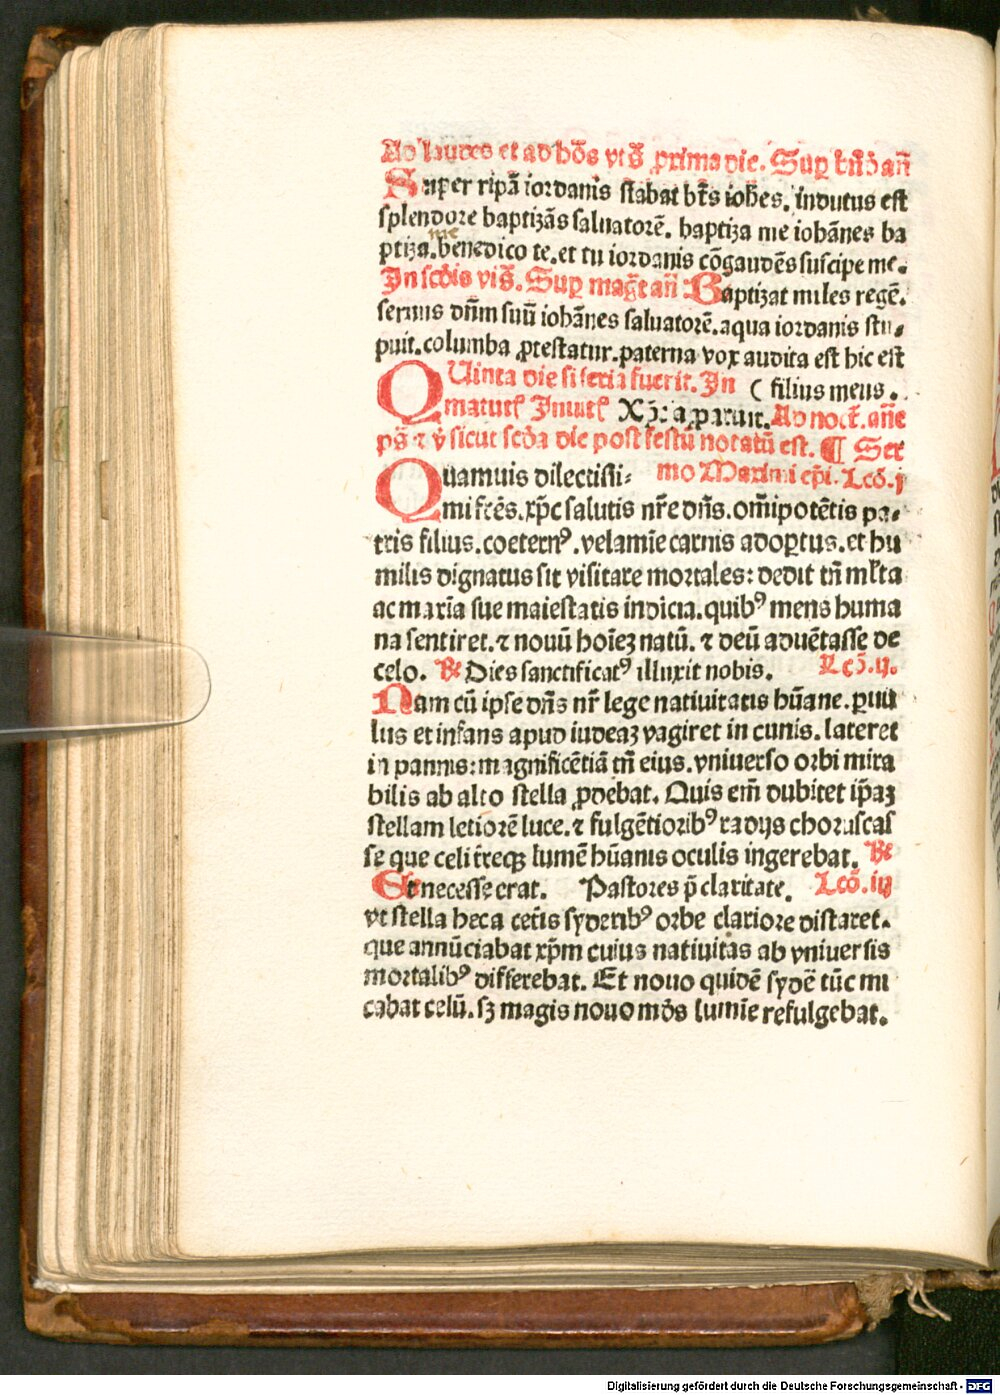 Ad laudes et ad hōs vt s̄ prima die. Sup b̄n̄dān̄
Super ripā iordanis stabat bt̄s ioh̄es. indutus est
splendore baptizās saluatorē. baptiza me iohānes ba
ptiza. me benedico te. et tu iordanis cōgaudēs suscipe me.
In scd̄is vt s̄. Sup maḡt an̄ Baptizat miles regē.
seruus dn̄m suū iohānes saluatorē. aqua iordanis stu-
puit. columba ꝓtestatur. paterna vox audita est hic est
QUinta die si feria fuerit. In ( filius meus.
matut̄ Inuit̄ Xp̄c aparuit. Ad noct̄. an̄e
ps̄ ⁊ v̄ sicut scd̄a die post festū notatū est. ¶ Ser
Quamuis dilectissi- mo Maximi ep̄i. Lcō. j
mi fr̄es. xp̄c salutis nr̄e dn̄s. om̄ipotētis pa-
tris filius. coeternꝰ. velamīe carnis adoꝑtus. et hu
milis dignatus sit visitare mortales: dedit tn̄ ml̄ta
ac maxīa sue maiestatis indicia. quibꝰ mens huma
na sentiret. ⁊ nouū hoīeꝫ natū. ⁊ deū aduētasse de
celo. ℟ Dies sanctificatꝰ illuxit nobis. Lcō. ij.
Nam cū ipse dn̄s nr̄ lege natiuitatis hūane. ꝑuu
lus et infans apud iudeaꝫ vagiret in cunis. lateret
in pannis: magnificētiā tn̄ eius. vniuerso orbi mira
bilis ab alto stella ꝓdebat. Quis em̄ dubitet ip̄aꝫ
stellam letiorē luce. ⁊ fulgētioribꝰ radijs choruscas
se que celi t̄reqꝫ lumē hūanis oculis ingerebat. ℟
Et necesse erat. Pastores p̄ claritate. Lcō. iij
vt stella hec a cet̄is syderibꝰ orbe clariore distaret.
que annūciabat xp̄m cuius natiuitas ab vniuersis
mortalibꝰ differebat. Et nouo quidē sydē tūc mi
cabat celū. sꝫ magis nouo mōs lumīe refulgebat.
Digitalisierung gefördert durch die Deutsche Forschungsgemeinschaft - DFG